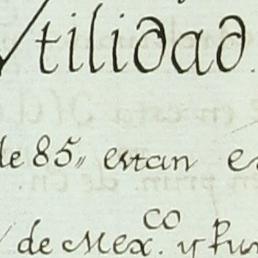 tilidad.
de 85,, estan
de Mex.co y